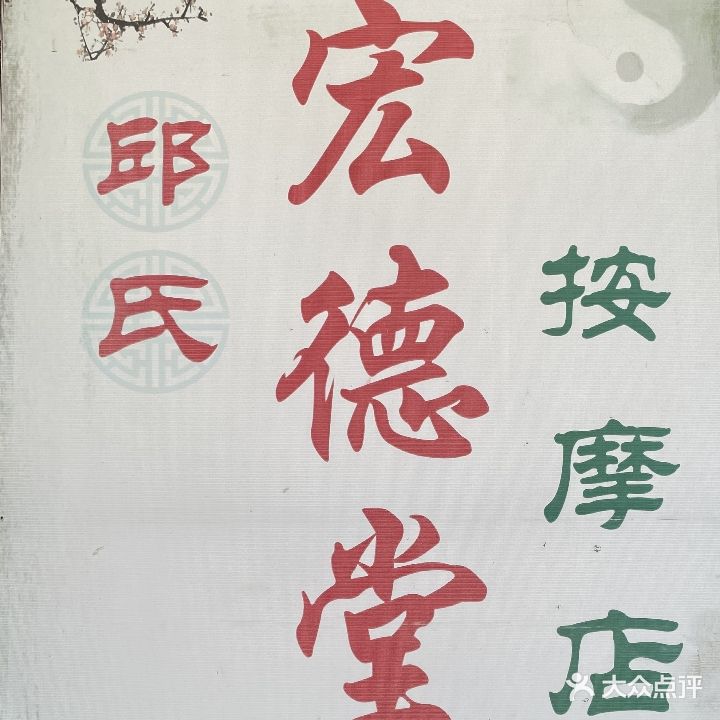 邱氏
宏德堂
按摩店
大众点评